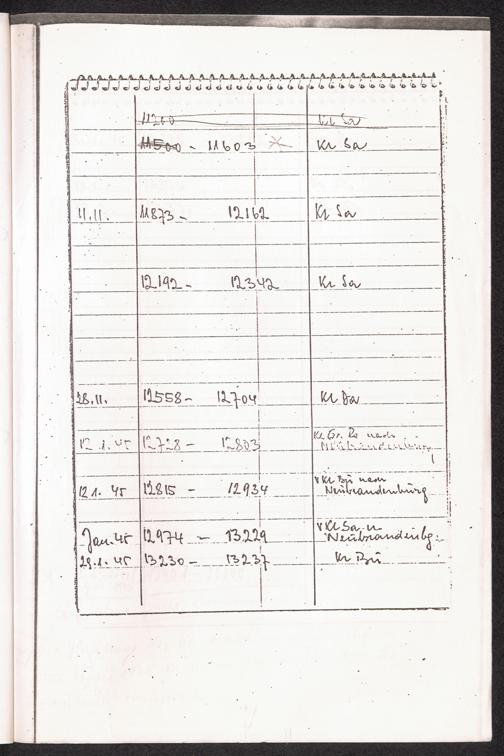 11200 Kr Sa
11500 - 11603 Kr Sa
11.11. 11873 - 12162 Kr Sa
12192 - 12342 Kr Sa
28.11. 12558 - 12704 Kr
12.1.45 12728 - 12803 Kr Gr. nach
Neubrandenburg
12.1.45 12815 - 12934 v Kr Bü nach
Neubrandenburg
Jan. 45 12974 - 13229 v Kr Sa n
Neubrandenbg.
29.1.45 13230 - 13237 Kr Bü